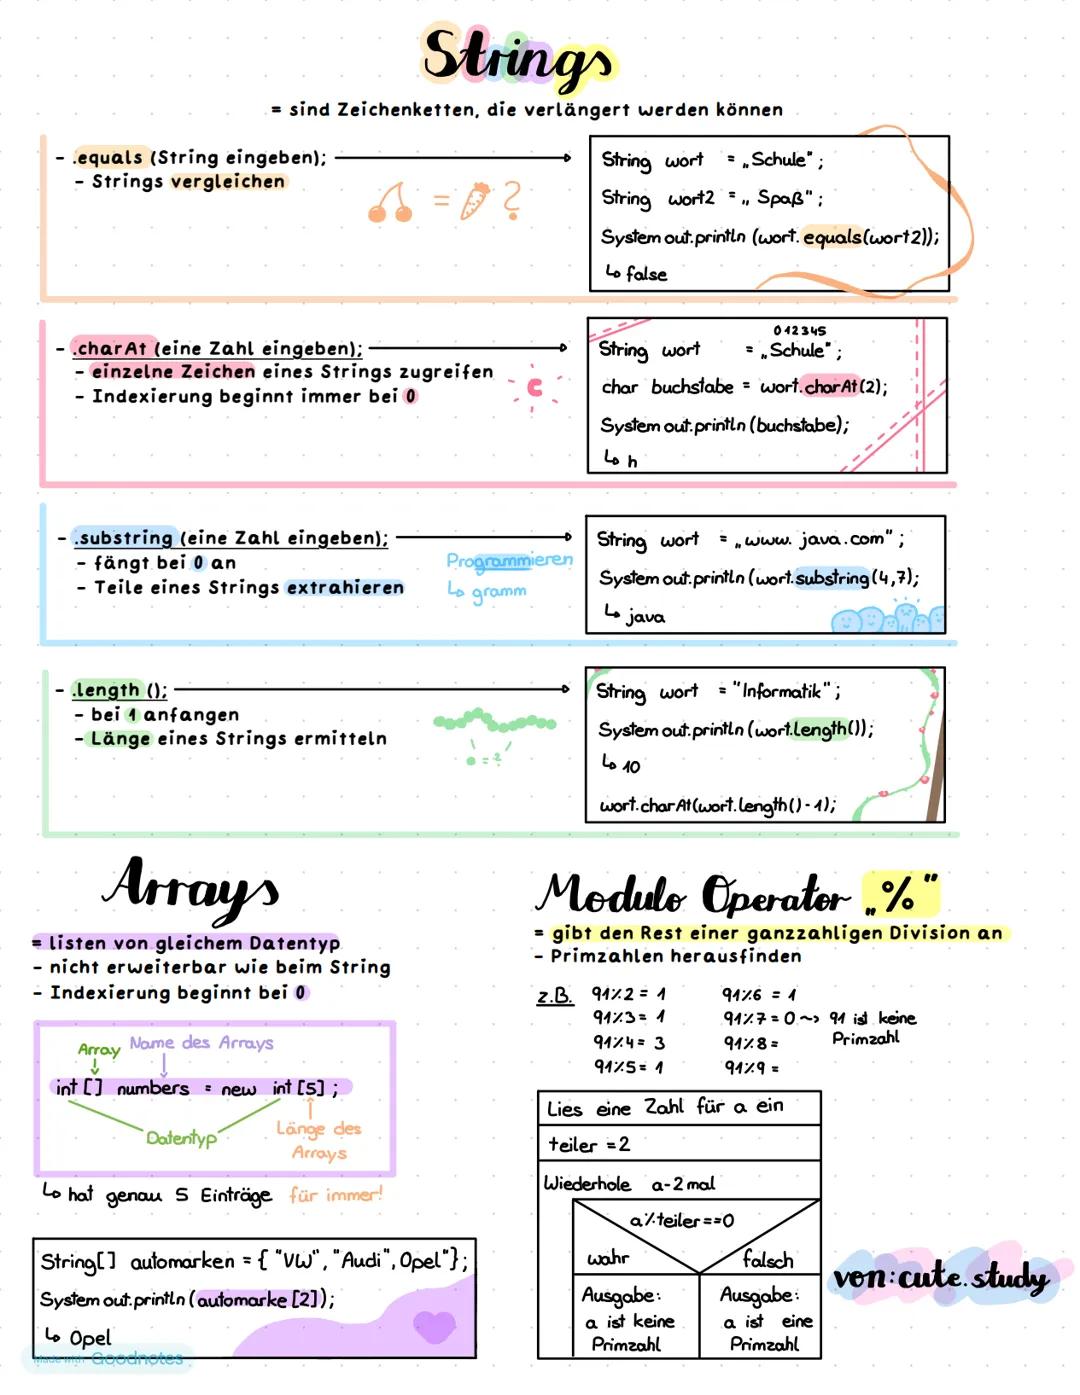 Strings
= sind Zeichenketten, die verlängert werden können
- .equals (String eingeben);
- Strings vergleichen
= ?
String wort = „Schule";
String wort2 = „Spaß";
System out.println (wort.equals(wort2));
↳ false
- .charAt (eine Zahl eingeben);
- einzelne Zeichen eines Strings zugreifen
- Indexierung beginnt immer bei 0
C
012345
String wort = „Schule";
char buchstabe = wort.charAt(2);
System out.println (buchstabe);
↳ h
- .substring (eine Zahl eingeben);
- fängt bei 0 an
- Teile eines Strings extrahieren
Programmieren
↳ gramm
String wort = „www. java.com";
System out.println (wort.substring(4,7);
↳ java
- .length ();
- bei 1 anfangen
- Länge eines Strings ermitteln
= ?
String wort = "Informatik";
System out.println (wort.length());
↳ 10
wort.charAt(wort.length()-1);
Arrays
= listen von gleichem Datentyp
- nicht erweiterbar wie beim String
- Indexierung beginnt bei 0
Array Name des Arrays
int [] numbers = new int [5];
Datentyp
Länge des
Arrays
↳ hat genau 5 Einträge für immer!
String[] automarken = { "VW", "Audi", Opel"};
System out.println (automarke [2]);
↳ Opel
Made with Goodnotes
Modulo Operator „%"
= gibt den Rest einer ganzzahligen Division an
- Primzahlen herausfinden
z.B. 91%2 = 1 91%6 = 1
91%3 = 1 91%7 = 0 ~> 91 ist keine
Primzahl
91%4 = 3 91%8 =
91%5 = 1 91%9 =
Lies eine Zahl für a ein
teiler = 2
Wiederhole a-2 mal
a%teiler==0
wahr falsch
Ausgabe:
a ist keine
Primzahl
Ausgabe:
a ist eine
Primzahl
von: cute.study